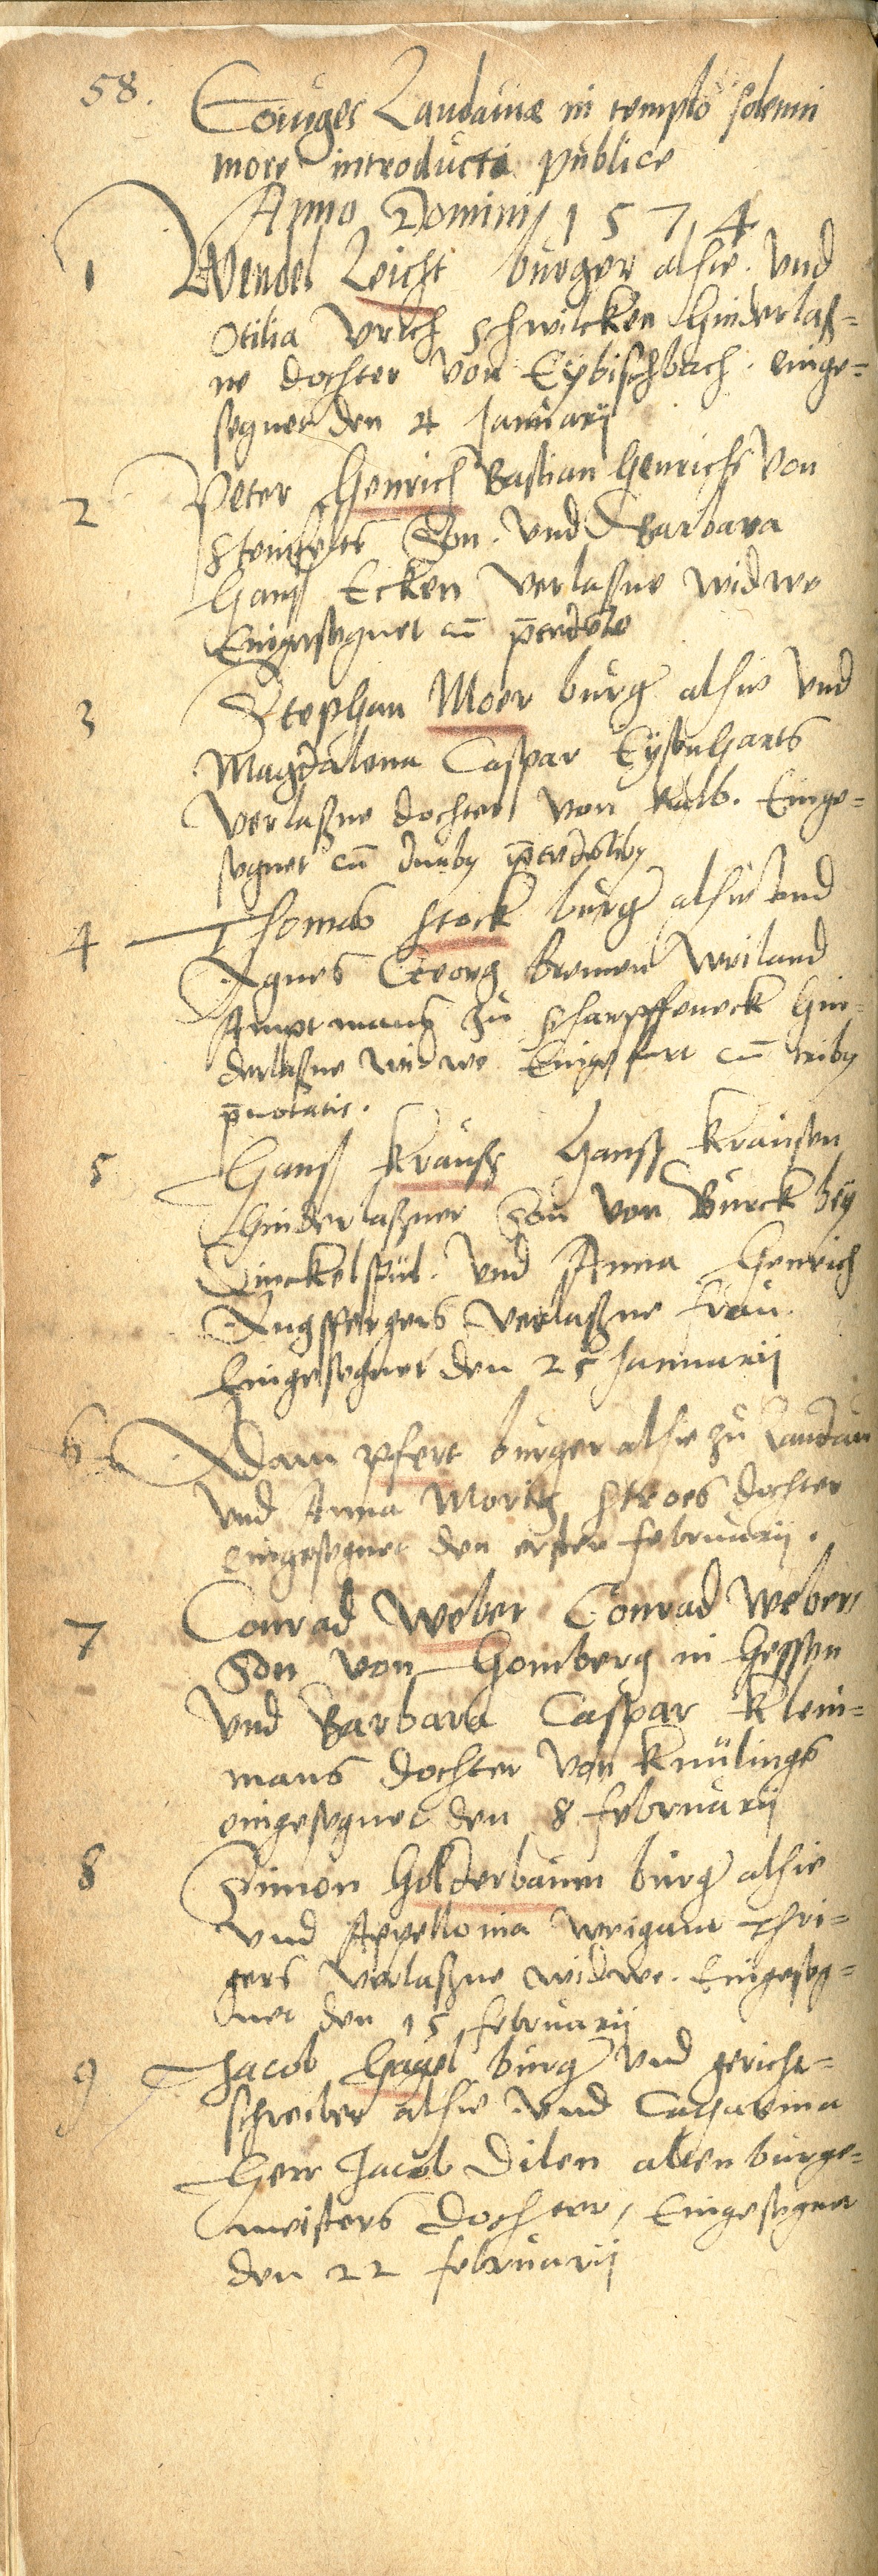 58.
Coniuges Landauiae in templo solenni
more introducti publice
Anno Domini 1574
1 Wendel Leicht burger alhie. Vnd
Otilia Vrich Schwilcken hinderlaß=
ne dochter von Eybischbach. einge=
segnet den 4 Januarij
2 Peter Henrich Bastian Henrichs Von
Son. Vnd Barbara
Hans Ecken Verlaßne widwe
Eingesegnet cū
3 Stephan Moer burger alhie Vnd
Magdalena Caspar Eysenharts
Verlaßne dochter von Kalb. Einge=
segnet cū duaby
4 Thomas Stock burger alhie vnd
Agnes Georg bremen weiland
Amptmans zu Scharpffeneck hin=
derlaßne widwe Eingefürt cū triby
p̄notatis.
5 Hans Krauß Hanß Kraußen
Hinderlaßner Son von Burck bey
Dinckelspül. Vnd Anna Henrich
Verlaßne frau.
Eingesegnet den 25 Januarij
6 Adam Pfert burger alhie zu Landau
Vnd Anna Moritz Stroes dochter
eingesegnet den erster februarij.
7 Conrad Weber Conrad Webers
Son von Homberg in Hessen
Vnd Barbara Caspar Klein=
mans dochter Von Knülings
eingesegnet den 8 februarij
8 Simon Holderbaum burger alhie
Vnd Appellonia Weigant Thri=
gers Verlaßne widwe. Eingeseg=
net den 15 februarij
9 Jacob Hagel burger Vnd gericht=
schreiber alhie Vnd Catharina
Herr Jacob Dilen alten burge=
meisters Dochter, Eingesegnet
den 22 februarij